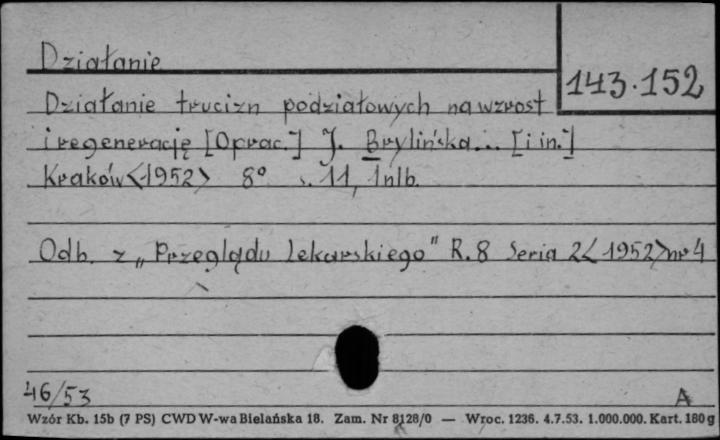 Działanie
143.152
Działanie trucizn podziałowych na wzrost
i regenerację [Oprac.] J. Brylińska... [i in.]
Kraków <1952> 8° s. 11, 1 nlb.
Odb. z „Przeglądu Lekarskiego" R. 8 Seria 2 <1952> nr 4
46/53
A
Wzór Kb. 15b (7 PS) CWD W-wa Bielańska 18. Zam. Nr 8128/0 — Wroc. 1236. 4.7.53. 1.000.000. Kart. 180 g